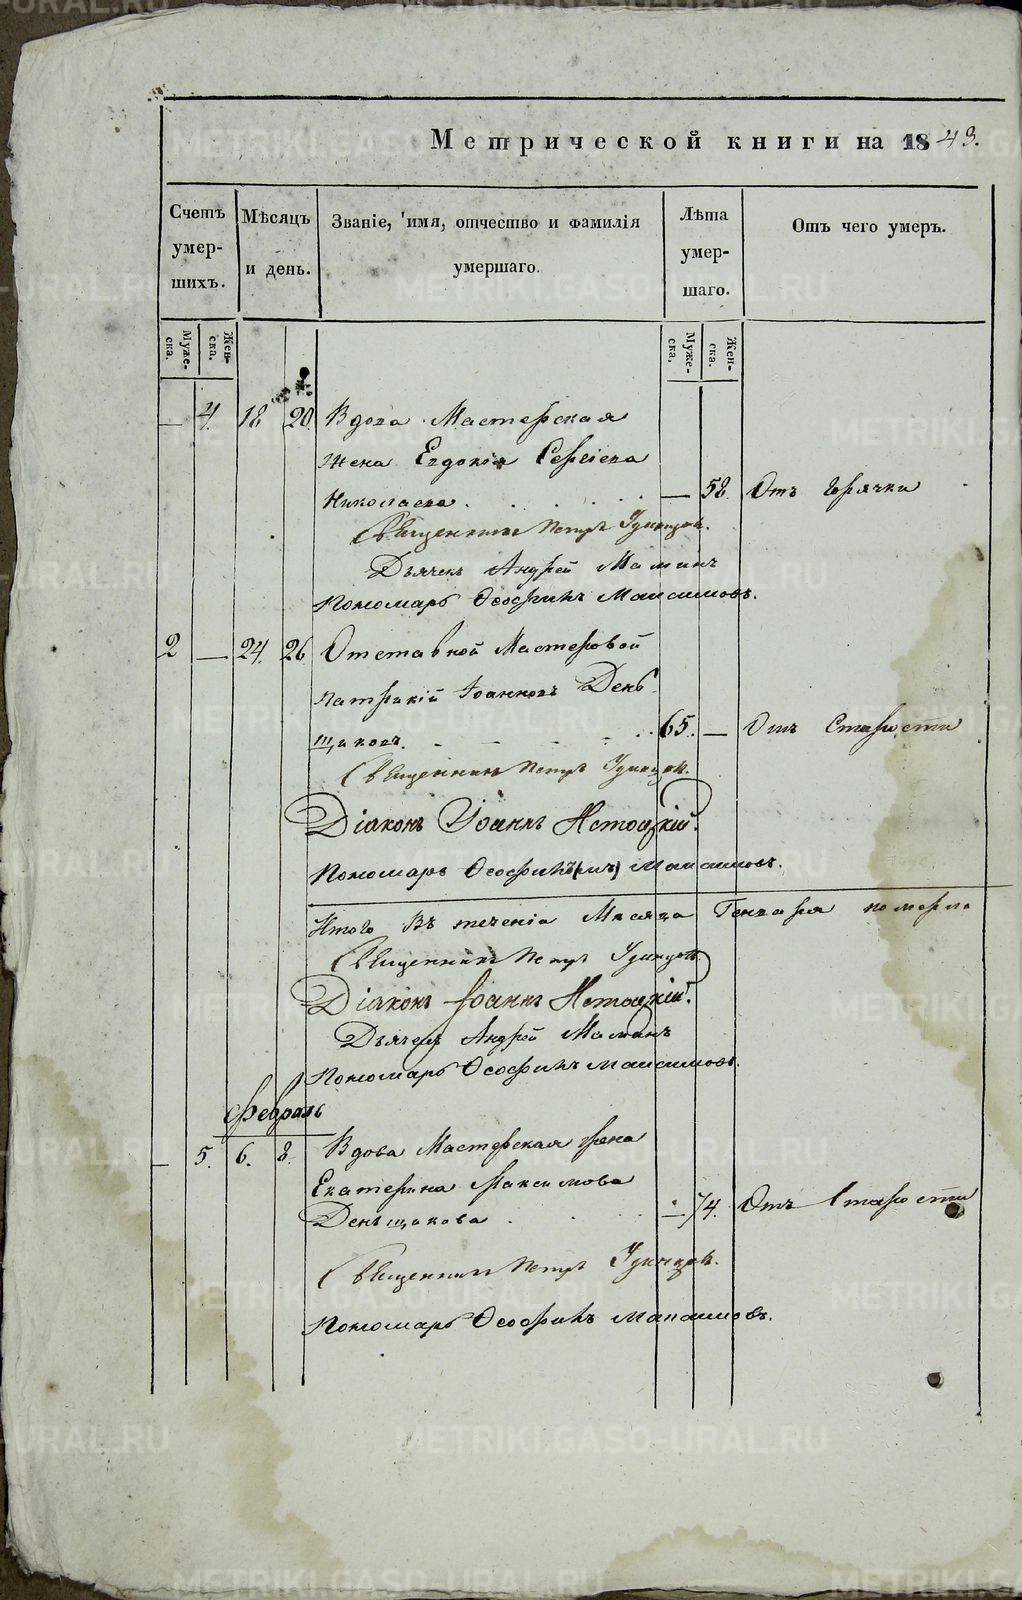 Метрической книги на 1843.
Счетъ умер-шихъ.
Мѣсяцъ и день.
Званіе, имя, отчество и фамилія умершаго.
Лѣта умер-шаго.
Отъ чего умеръ.
Муже-ска.
Жен-ска.
Муже-ска.
Жен-ска.
— 4. 18 20 Вдова Мастерская
жена Евдокія Сергіева
Николаева. — 58. Отъ горячки
Священникъ Петръ Удинцов.
Дьячекъ Андрей Маминъ
Пономарь Ѳеофилъ Максимовъ.
2 — 24. 26 Отставной Мастеровой
Патрикій Іоанновъ День
щиковъ. 65. — Отъ Старости
Священникъ Петръ Удинцов.
Діаконъ Іоаннъ Нетоцкій.
Пономарь Максимовъ.
Итого Въ теченіи Месяца Генваря померло
Священникъ Петръ Удинцов.
Діаконъ Іоаннъ Нетоцкій.
Дьячекъ Андрей Маминъ
Пономарь Ѳеофилъ Максимовъ.
Февраль
— 5. 6. 8. Вдова Мастерская жена
Екатерина Максимова
Денщикова — 74. Отъ Старости
Священникъ Петръ Удинцов.
Пономарь Ѳеофилъ Максимовъ.
METRIKI.GASO-URAL.RU